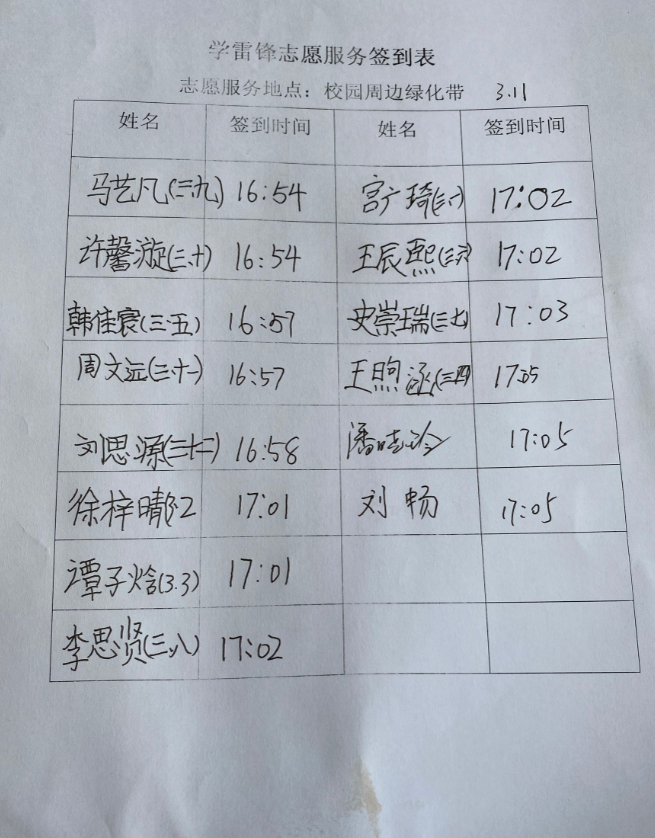 学雷锋志愿服务签到表
志愿服务地点：校园周边绿化带 3.11
姓名 签到时间 姓名 签到时间
马艺凡(三.九) 16:54 宫广琦(三.一) 17:02
许馨漩(三.十) 16:54 王辰熙(三.六) 17:02
韩佳宸(三.五) 16:57 史崇瑞(三.七) 17:03
周文远(三.十一) 16:57 王煦涵(三.四) 17:05
刘思源(三.十二) 16:58 潘 17:05
徐梓晴 17:01 刘畅 17:05
谭子焓(3.3) 17:01
李思贤(三.八) 17:02